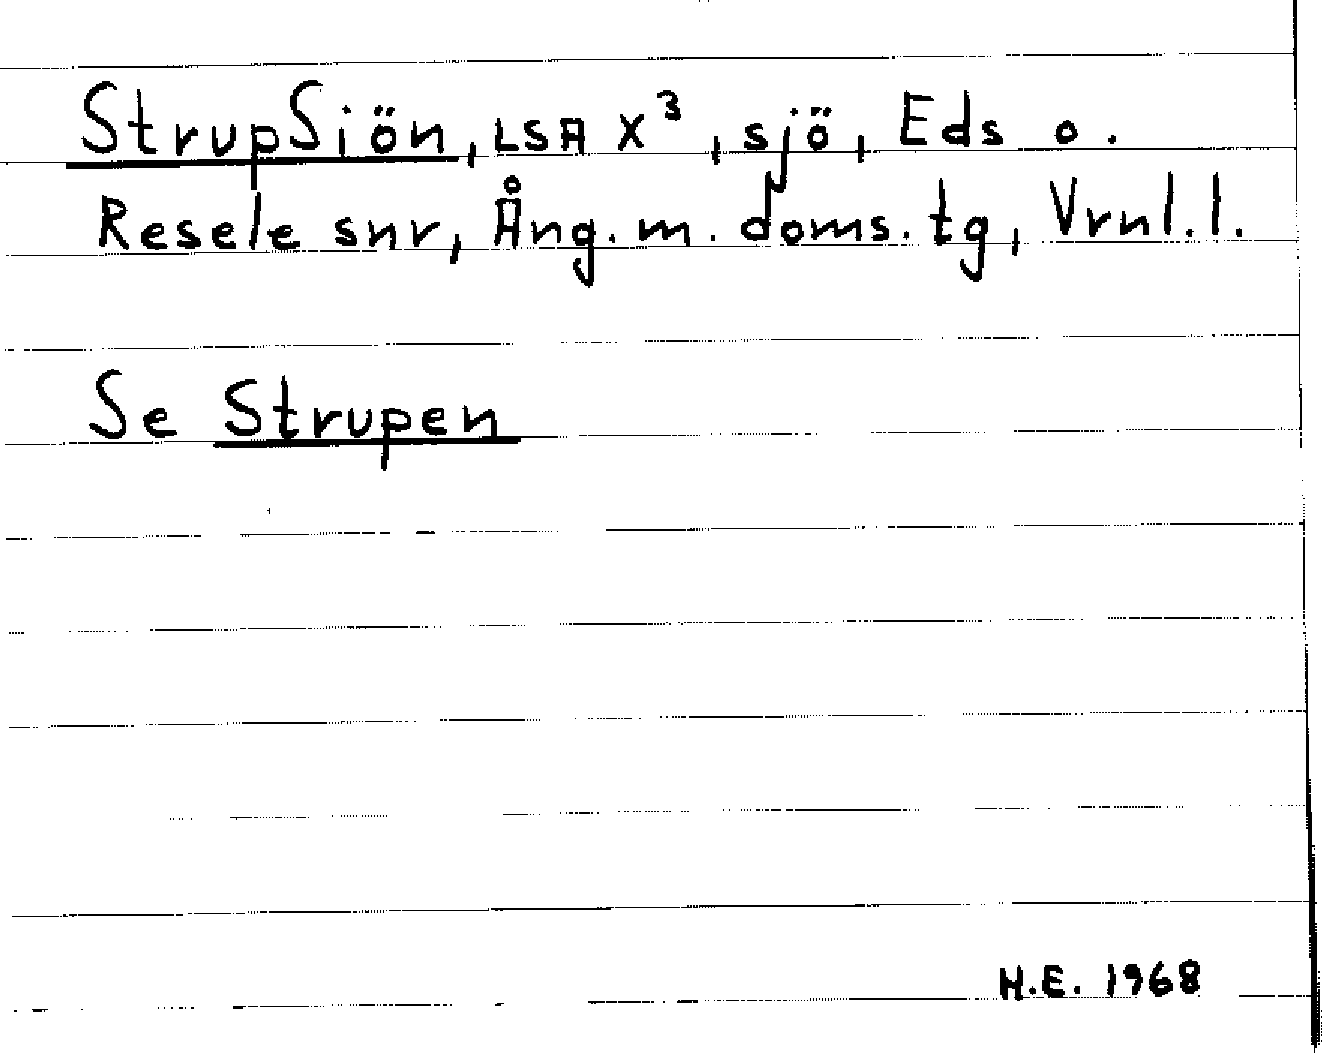 StrupSiön, LSA X³, sjö, Eds o.
Resele snr, Ång. m. doms. tg, Vrnl. l.
Se Strupen
H.E. 1968